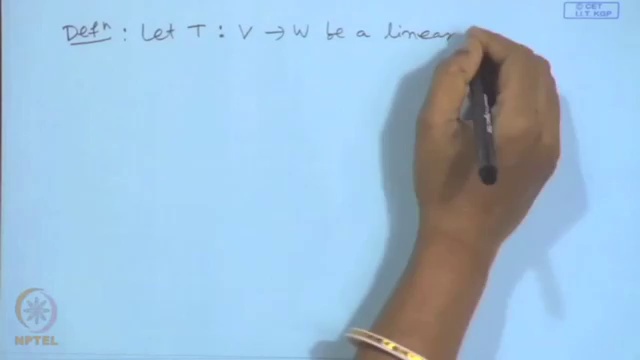 © CET
I.I.T. KGP
Defⁿ : Let T : V → W be a linear
NPTEL